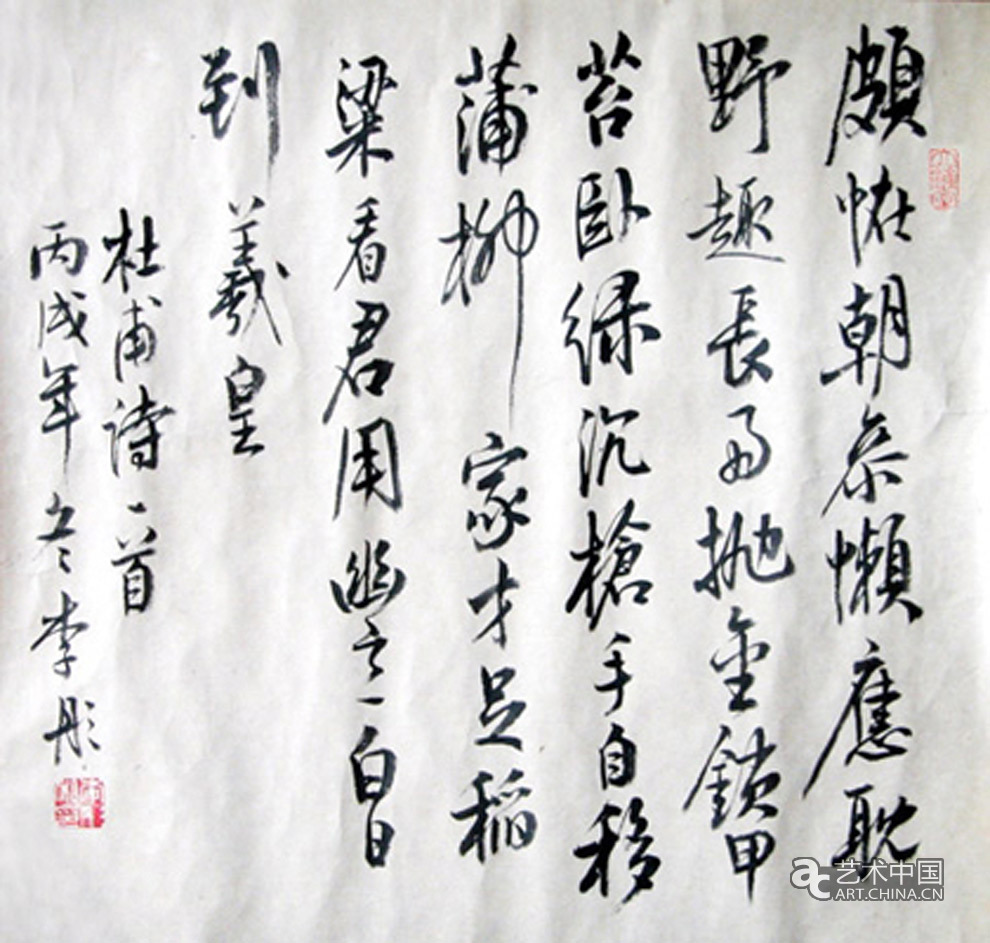 頗恠朝參懶應耽
野趣長雨抛金鎖甲
苔卧緑沉槍手自移
蒲柳家才足稻
粱看君用幽意白日
到羲皇
杜甫詩一首
丙戌年冬李彤
艺术中国
ART.CHINA.CN